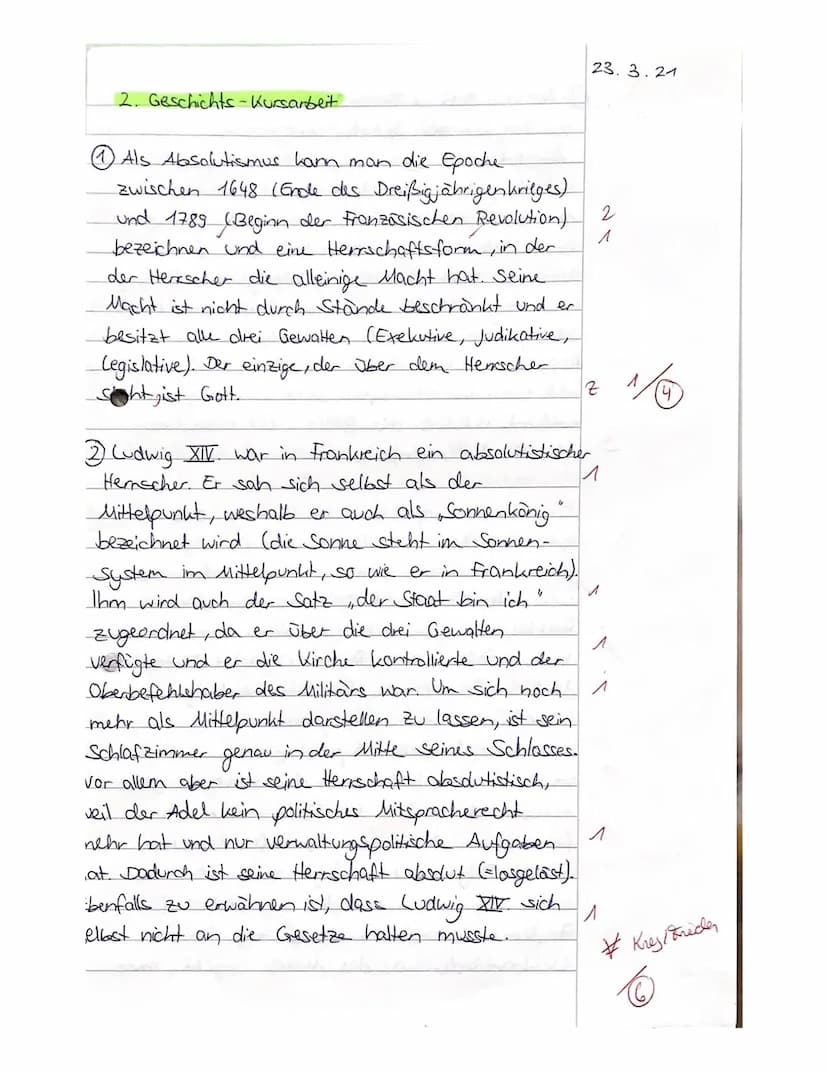 23.3.21
2. Geschichts-Kursarbeit
① Als Absolutismus kann man die Epoche
zwischen 1648 (Ende des Dreißigjährigenkrieges)
und 1789 (Beginn der Französischen Revolution) 2
bezeichnen und eine Herrschaftsform, in der 1
der Herrscher die alleinige Macht hat. Seine
Macht ist nicht durch Stände beschränkt und er
besitzt alle drei Gewalten (Exekutive, Judikative,
Legislative). Der einzige, der über dem Herrscher
steht, ist Gott. 1/4
② Ludwig XIV. war in Frankreich ein absolutistischer
Herrscher. Er sah sich selbst als der 1
Mittelpunkt, weshalb er auch als „Sonnenkönig"
bezeichnet wird (die Sonne steht im Sonnen-
system im Mittelpunkt, so wie er in Frankreich).
Ihm wird auch der Satz „der Staat bin ich" 1
zugeordnet, da er über die drei Gewalten
verfügte und er die Kirche kontrollierte und der 1
Oberbefehlshaber des Militärs war. Um sich noch 1
mehr als Mittelpunkt darstellen zu lassen, ist sein
Schlafzimmer genau in der Mitte seines Schlosses.
Vor allem aber ist seine Herrschaft absolutistisch,
weil der Adel kein politisches Mitspracherecht
mehr hat und nur verwaltungspolitische Aufgaben 1
at. Dadurch ist seine Herrschaft absolut (=losgelöst).
benfalls zu erwähnen ist, dass Ludwig XIV. sich 1
elbst nicht an die Gesetze halten musste.
6